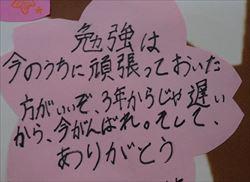 勉強は
今のうちに頑張っておいた
方がいいぞ、3年からじゃ遅い
から、今がんばれ。そして、
ありがとう